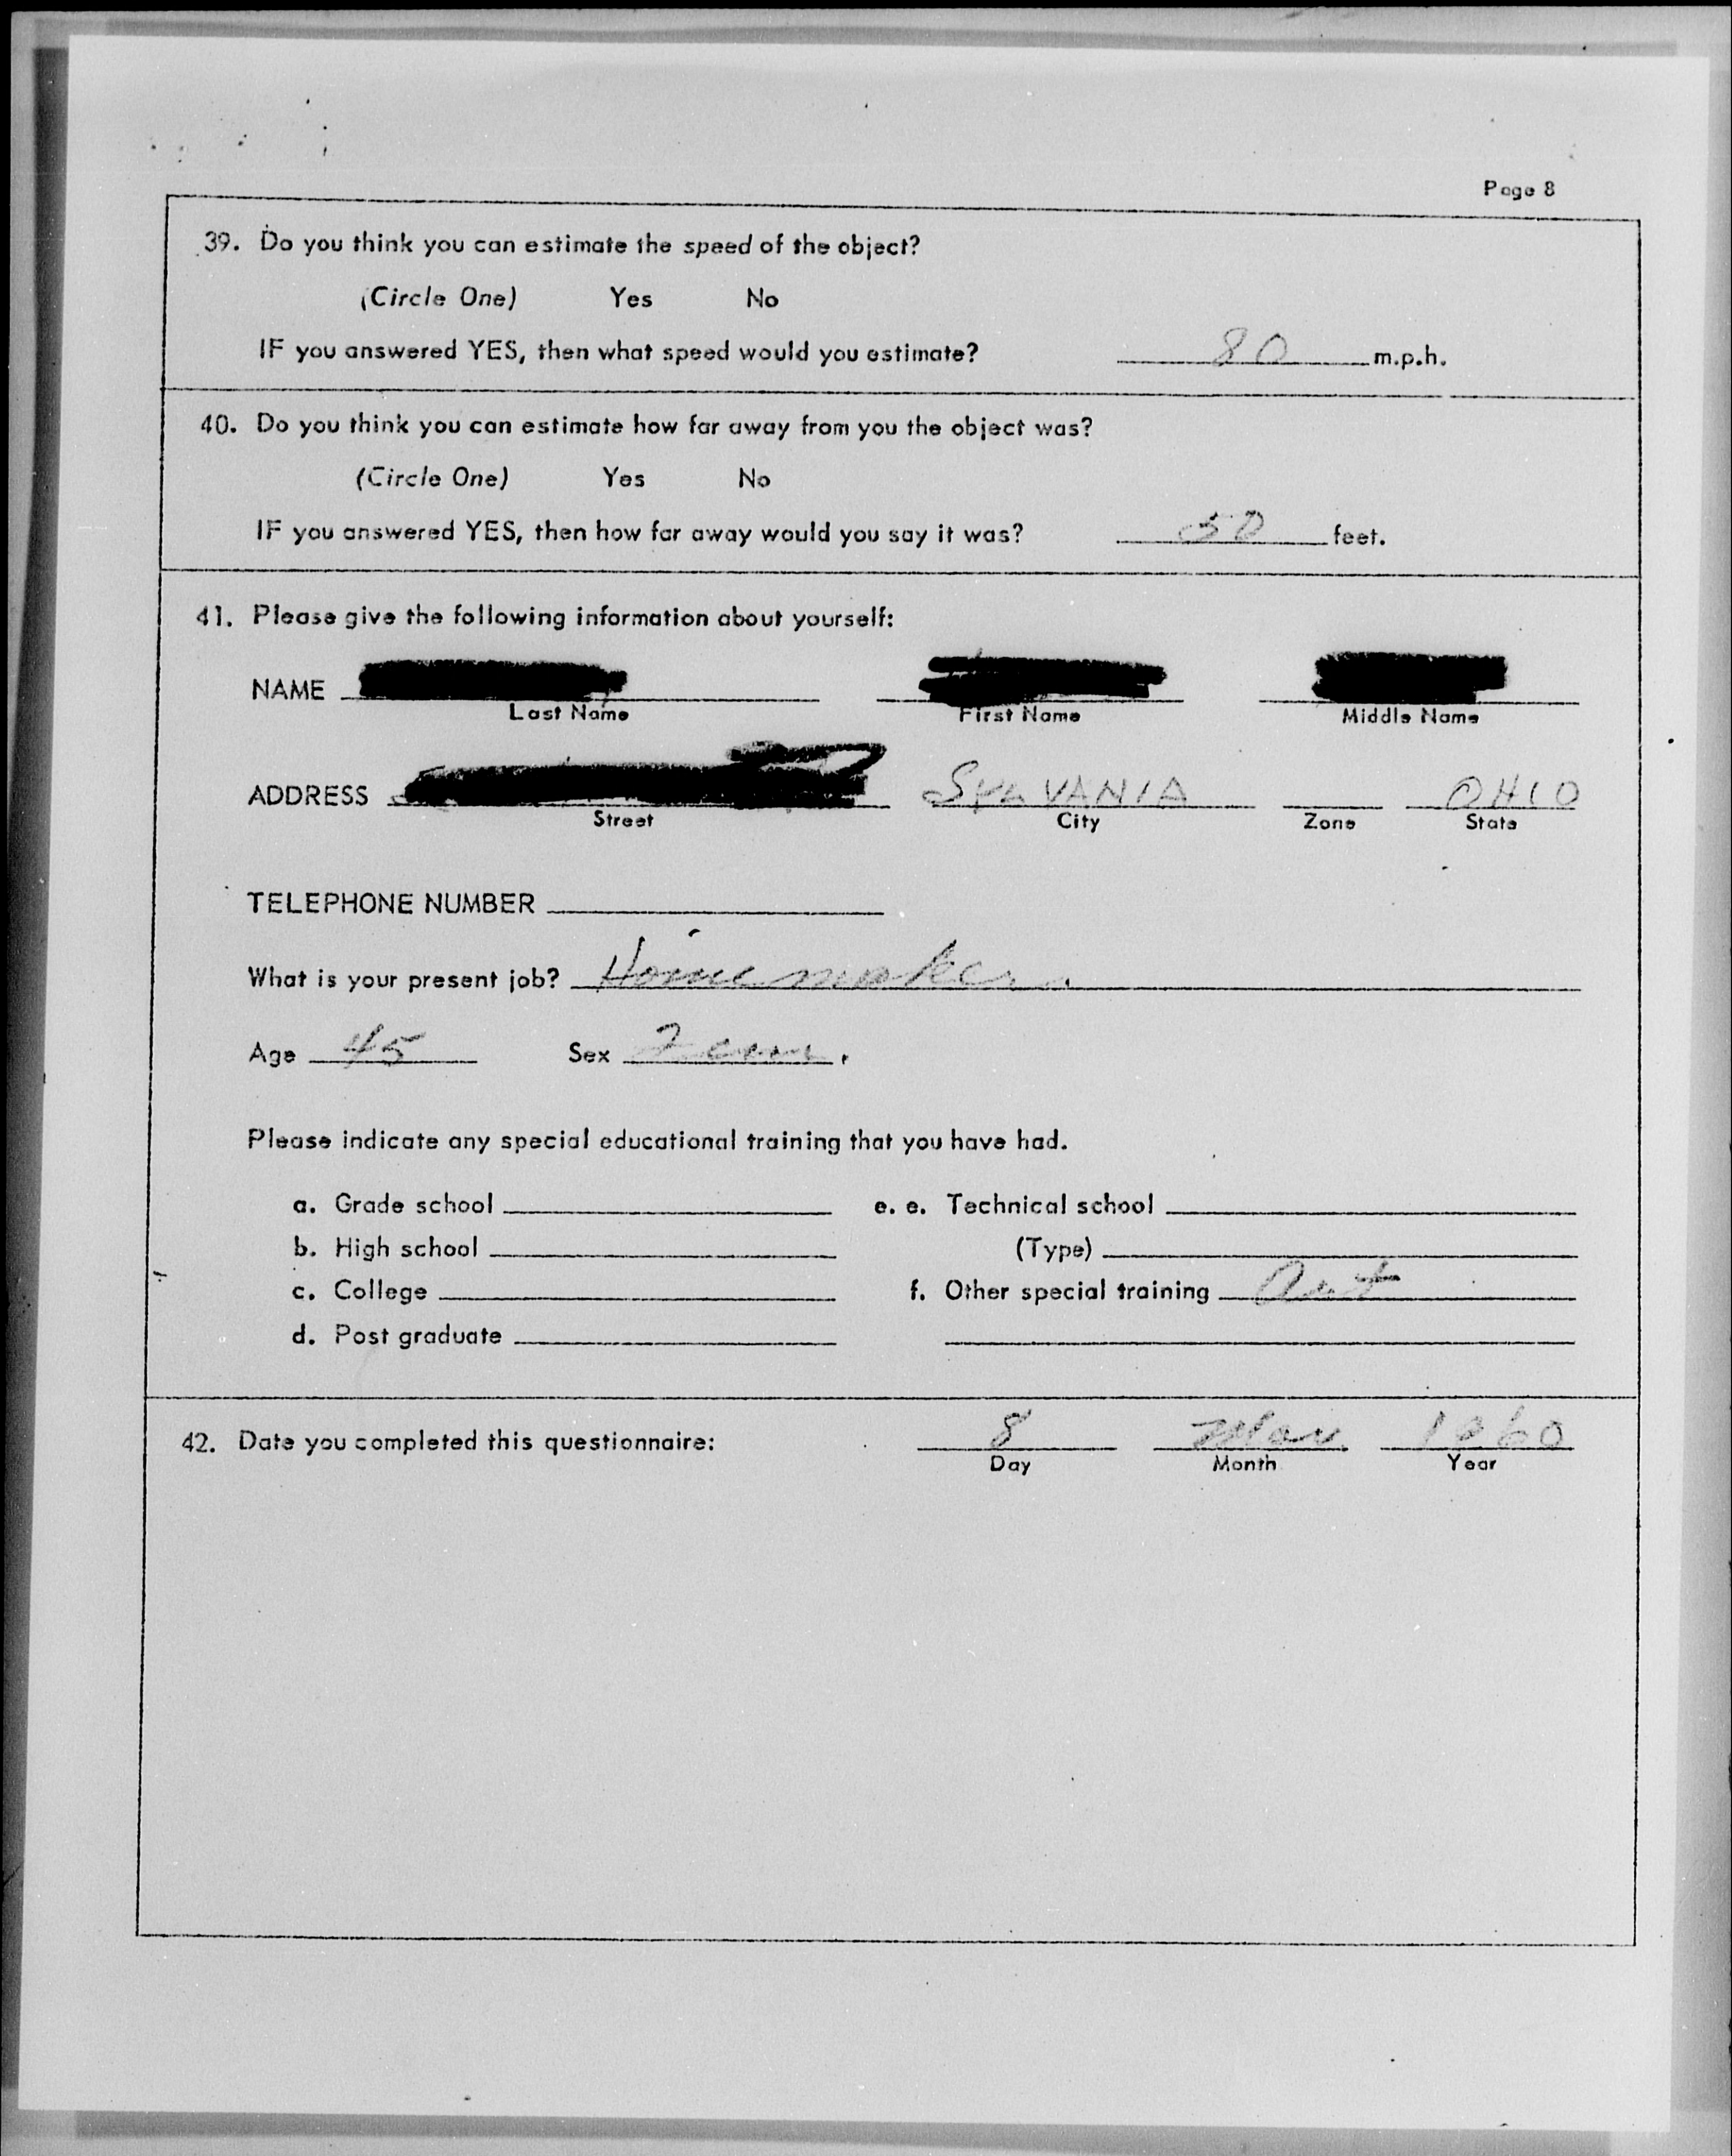 Page 8
39. Do you think you can estimate the speed of the object?
(Circle One) Yes No
IF you answered YES, then what speed would you estimate? 80 m.p.h.
40. Do you think you can estimate how far away from you the object was?
(Circle One) Yes No
IF you answered YES, then how far away would you say it was? 50 feet.
41. Please give the following information about yourself:
NAME
Last Name First Name Middle Name
ADDRESS SYLVANIA OHIO
Street City Zone State
TELEPHONE NUMBER
What is your present job? Homemaker.
Age 45 Sex Fem.
Please indicate any special educational training that you have had.
a. Grade school e. e. Technical school
b. High school (Type)
c. College f. Other special training Art
d. Post graduate
42. Date you completed this questionnaire: 8 1960
Day Month Year